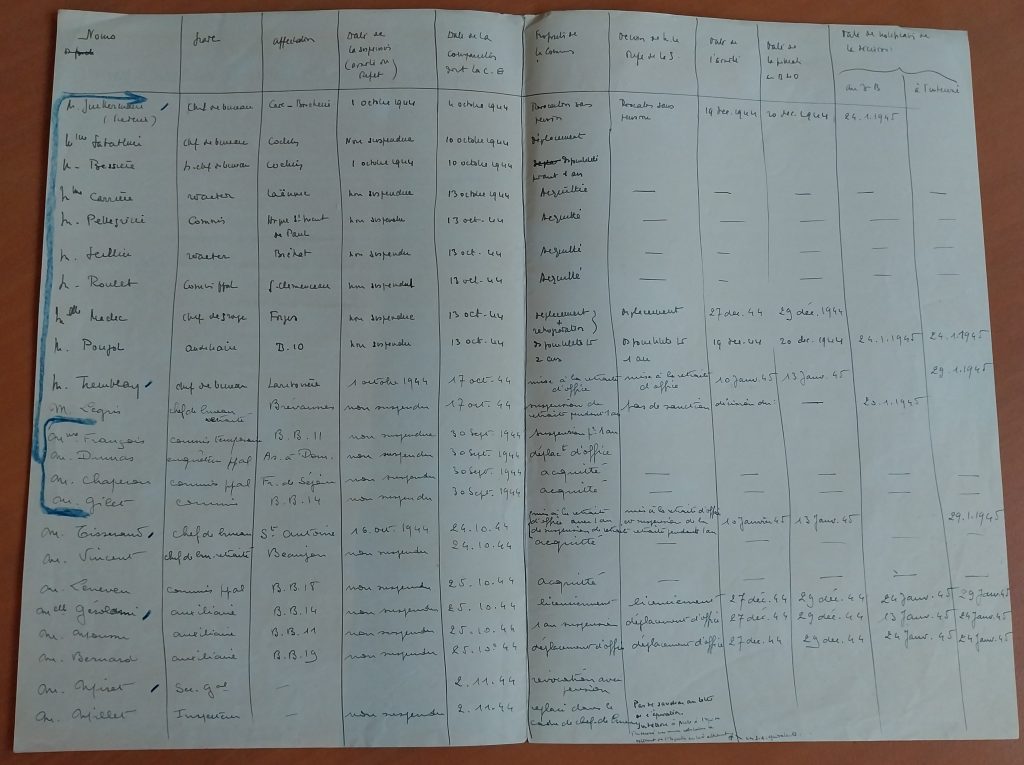 Noms grade affectation Date de la suspension (arrêté du Préfet) Date de la comparution dvt la C. E Proposition de la Commis. Décision de M. le Préfet de la S. Date de l'arrêté Date de la public. au BMO Date de notification de la décision
au D B à l'intéressé
M. chef de bureau 1 octobre 1944 4 octobre 1944 Révocation sans pension Révocation sans pension 19 dec. 1944 20 dec. 1944 24.1.1945
(Retraité)
Mme chef de bureau Cochin Non suspendue 10 octobre 1944 déplacement
M. Bessière s. chef de bureau Cochin 1 octobre 1944 10 octobre 1944 disponibilité pdant 1 an
Mme Carrière Laënnec non suspendue 13 octobre 1944 Acquittée — — — — —
M. Pellegrini Commis St Vincent de Paul non suspendu 13 oct. 44 Acquitté — — — — —
M. Bichat non suspendu 13 oct. 44 Acquitté — — — —
M. Roulet Commis ppal G. Clemenceau non suspendu 13 oct. 44 Acquitté — — — —
Mlle Medec non suspendue 13 oct. 44 déplacement + rétrogradation déplacement 27 dec. 44 29 déc. 1944
M. Poujol auxiliaire B.10 non suspendu 13 oct. 44 disponibilité 2 ans disponibilité 1 an 19 dec. 44 20 dec. 1944 24.1.1945 24.1.1945
M. Tremblay chef de bureau Lariboisière 1 octobre 1944 17 oct. 44 mise à la retraite d'office mise à la retraite d'office 10 Janv. 45 13 Janv. 45 29.1.1945
M. Legris chef de bureau retraité Brévannes non suspendu 17 oct. 44 suspension de retraite pendant 1 an pas de sanction décision du: — 23.1.1945
Mme François commis temporaire B.B.11 non suspendue 30 Sept. 1944 suspension pr 1 an
M. Dumas enquêteur ppal As. à Dom. non suspendu 30 Sept. 1944 déplact d'office
M. Chaperon commis ppal 30 Sept. 1944 acquitté — — — — —
M. Gilet commis B.B.14 non suspendu 30 Sept. 1944 acquitté — — — — —
M. Tisserand chef de bureau St Antoine 16 oct. 1944 24.10.44 mis à la retraite d'office avec 1 an de suspension de retraite mise à la retraite d'office et suspension de la retraite pendant 1 an 10 Janvier 45 13 Janv. 45 29.1.1945
M. Vincent chef de bur. retraité Beaujon non suspendu 24.10.44 acquitté — — — — —
M. Leneven commis ppal B.B.18 non suspendu 25.10.44 acquitté — — — — —
Mlle auxiliaire B.B.14 non suspendue 25.10.44 licenciement licenciement 27 déc. 44 29 déc. 44 24 Janv. 45 29 Janv 45
M. auxiliaire B.B.11 non suspendu 25.10.44 1 an suspension déplacement d'office 27 déc. 44 29 dec. 44 13 Janv. 45 24 Janv. 45
M. Bernard auxiliaire B.B.19 non suspendu 25.10.44 déplacement d'office déplacement d'office 27 dec. 44 29 dec. 44 24 Janv. 45 24 Janv. 45
M. Sec. gal — 2.11.44 révocation avec pension
M. Millet Inspecteur — non suspendu 2.11.44 replacé dans le cadre de chef de bureau